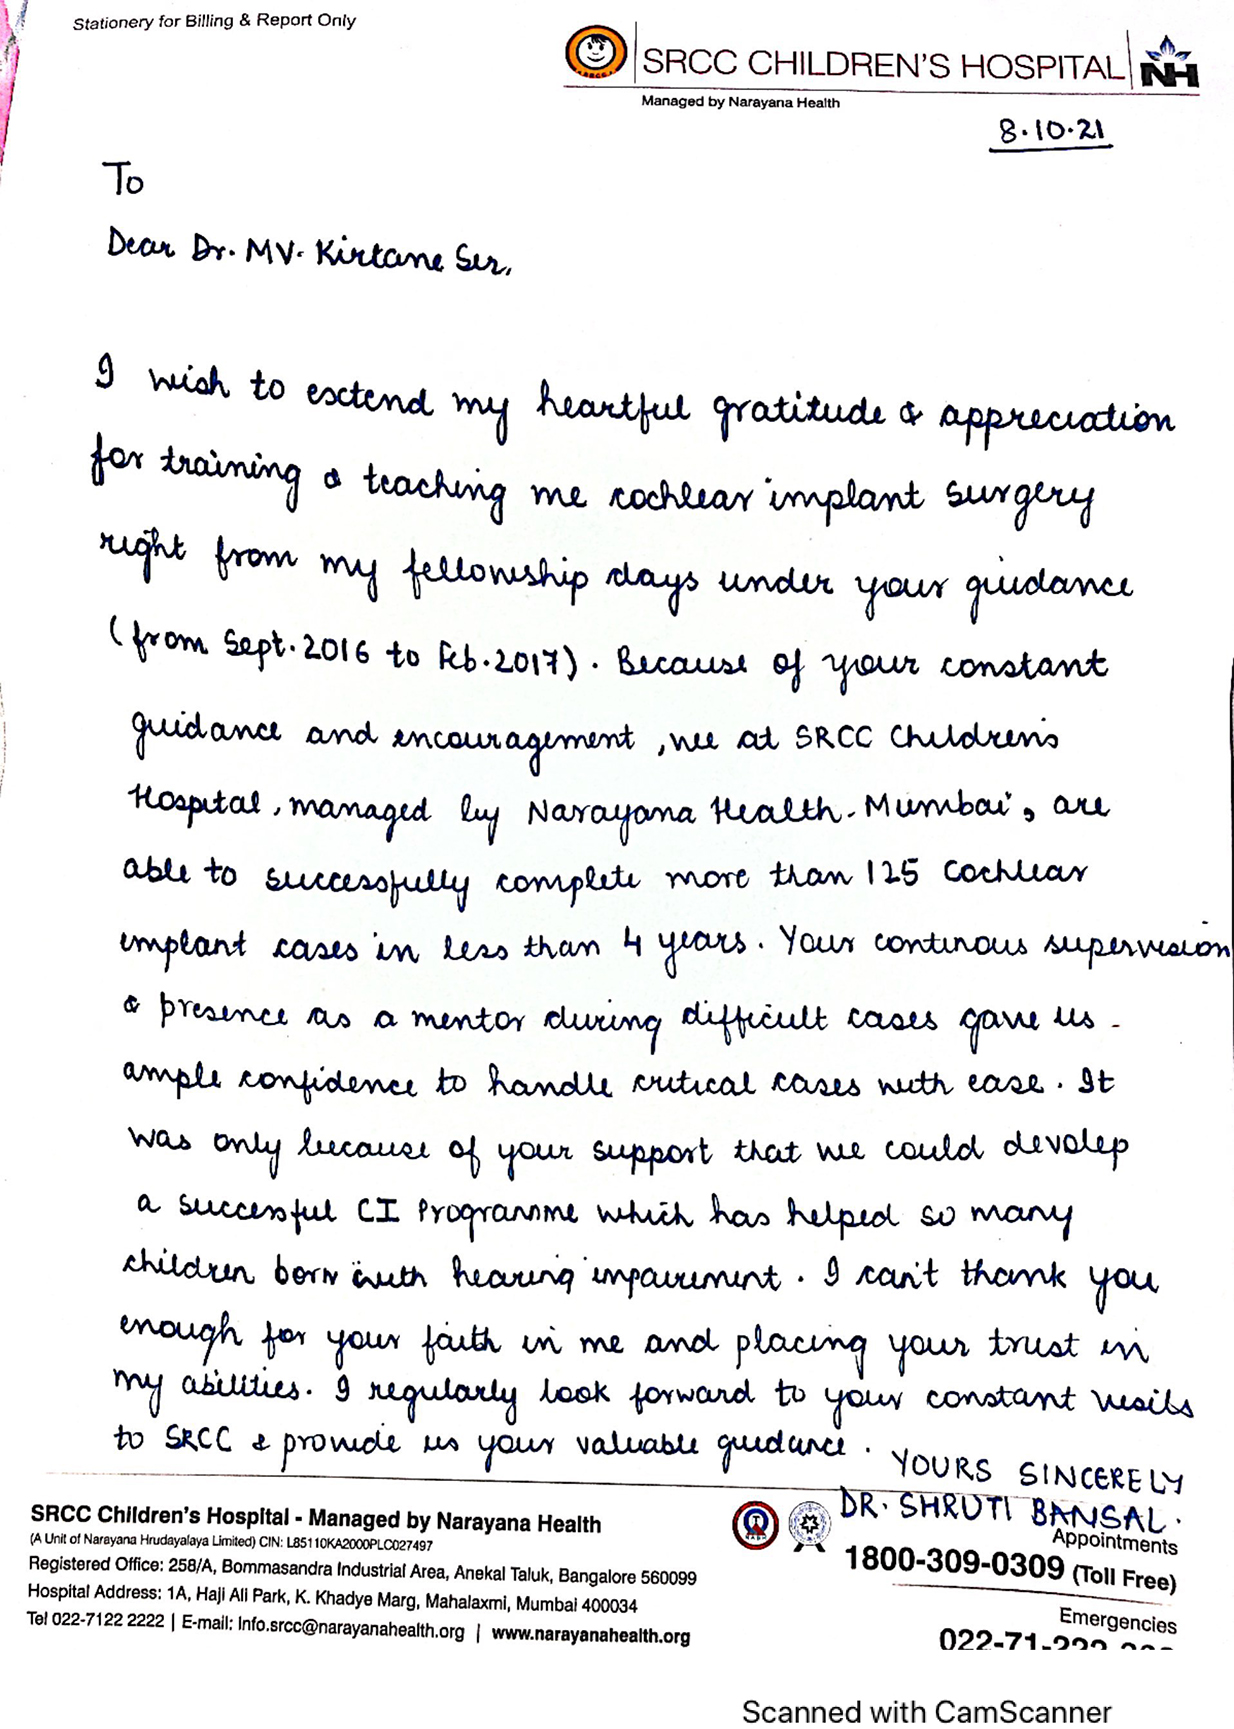 Stationery for Billing & Report Only
SRCC CHILDREN'S HOSPITAL NH
Managed by Narayana Health
8.10.21
To
Dear Dr. MV. Kirtane Sir,
I wish to extend my heartful gratitude & appreciation
for training & teaching me cochlear implant surgery
right from my fellowship days under your guidance
(from Sept. 2016 to Feb. 2017). Because of your constant
guidance and encouragement, we at SRCC Children's
Hospital, managed by Narayana Health - Mumbai, are
able to successfully complete more than 125 Cochlear
implant cases in less than 4 years. Your continous supervision
& presence as a mentor during difficult cases gave us -
ample confidence to handle critical cases with ease. It
was only because of your support that we could devolep
a successful CI Programme which has helped so many
children born with hearing impairment. I can't thank you
enough for your faith in me and placing your trust in
my abilities. I regularly look forward to your constant visits
to SRCC & provide us your valuable guidance.
YOURS SINCERELY
DR. SHRUTI BANSAL.
SRCC Children's Hospital - Managed by Narayana Health
(A Unit of Narayana Hrudayalaya Limited) CIN: L85110KA2000PLC027497
Registered Office: 258/A, Bommasandra Industrial Area, Anekal Taluk, Bangalore 560099
Hospital Address: 1A, Haji Ali Park, K. Khadye Marg, Mahalaxmi, Mumbai 400034
Tel 022-7122 2222 | E-mail: Info.srcc@narayanahealth.org | www.narayanahealth.org
Appointments
1800-309-0309 (Toll Free)
Emergencies
022-71-222
Scanned with CamScanner